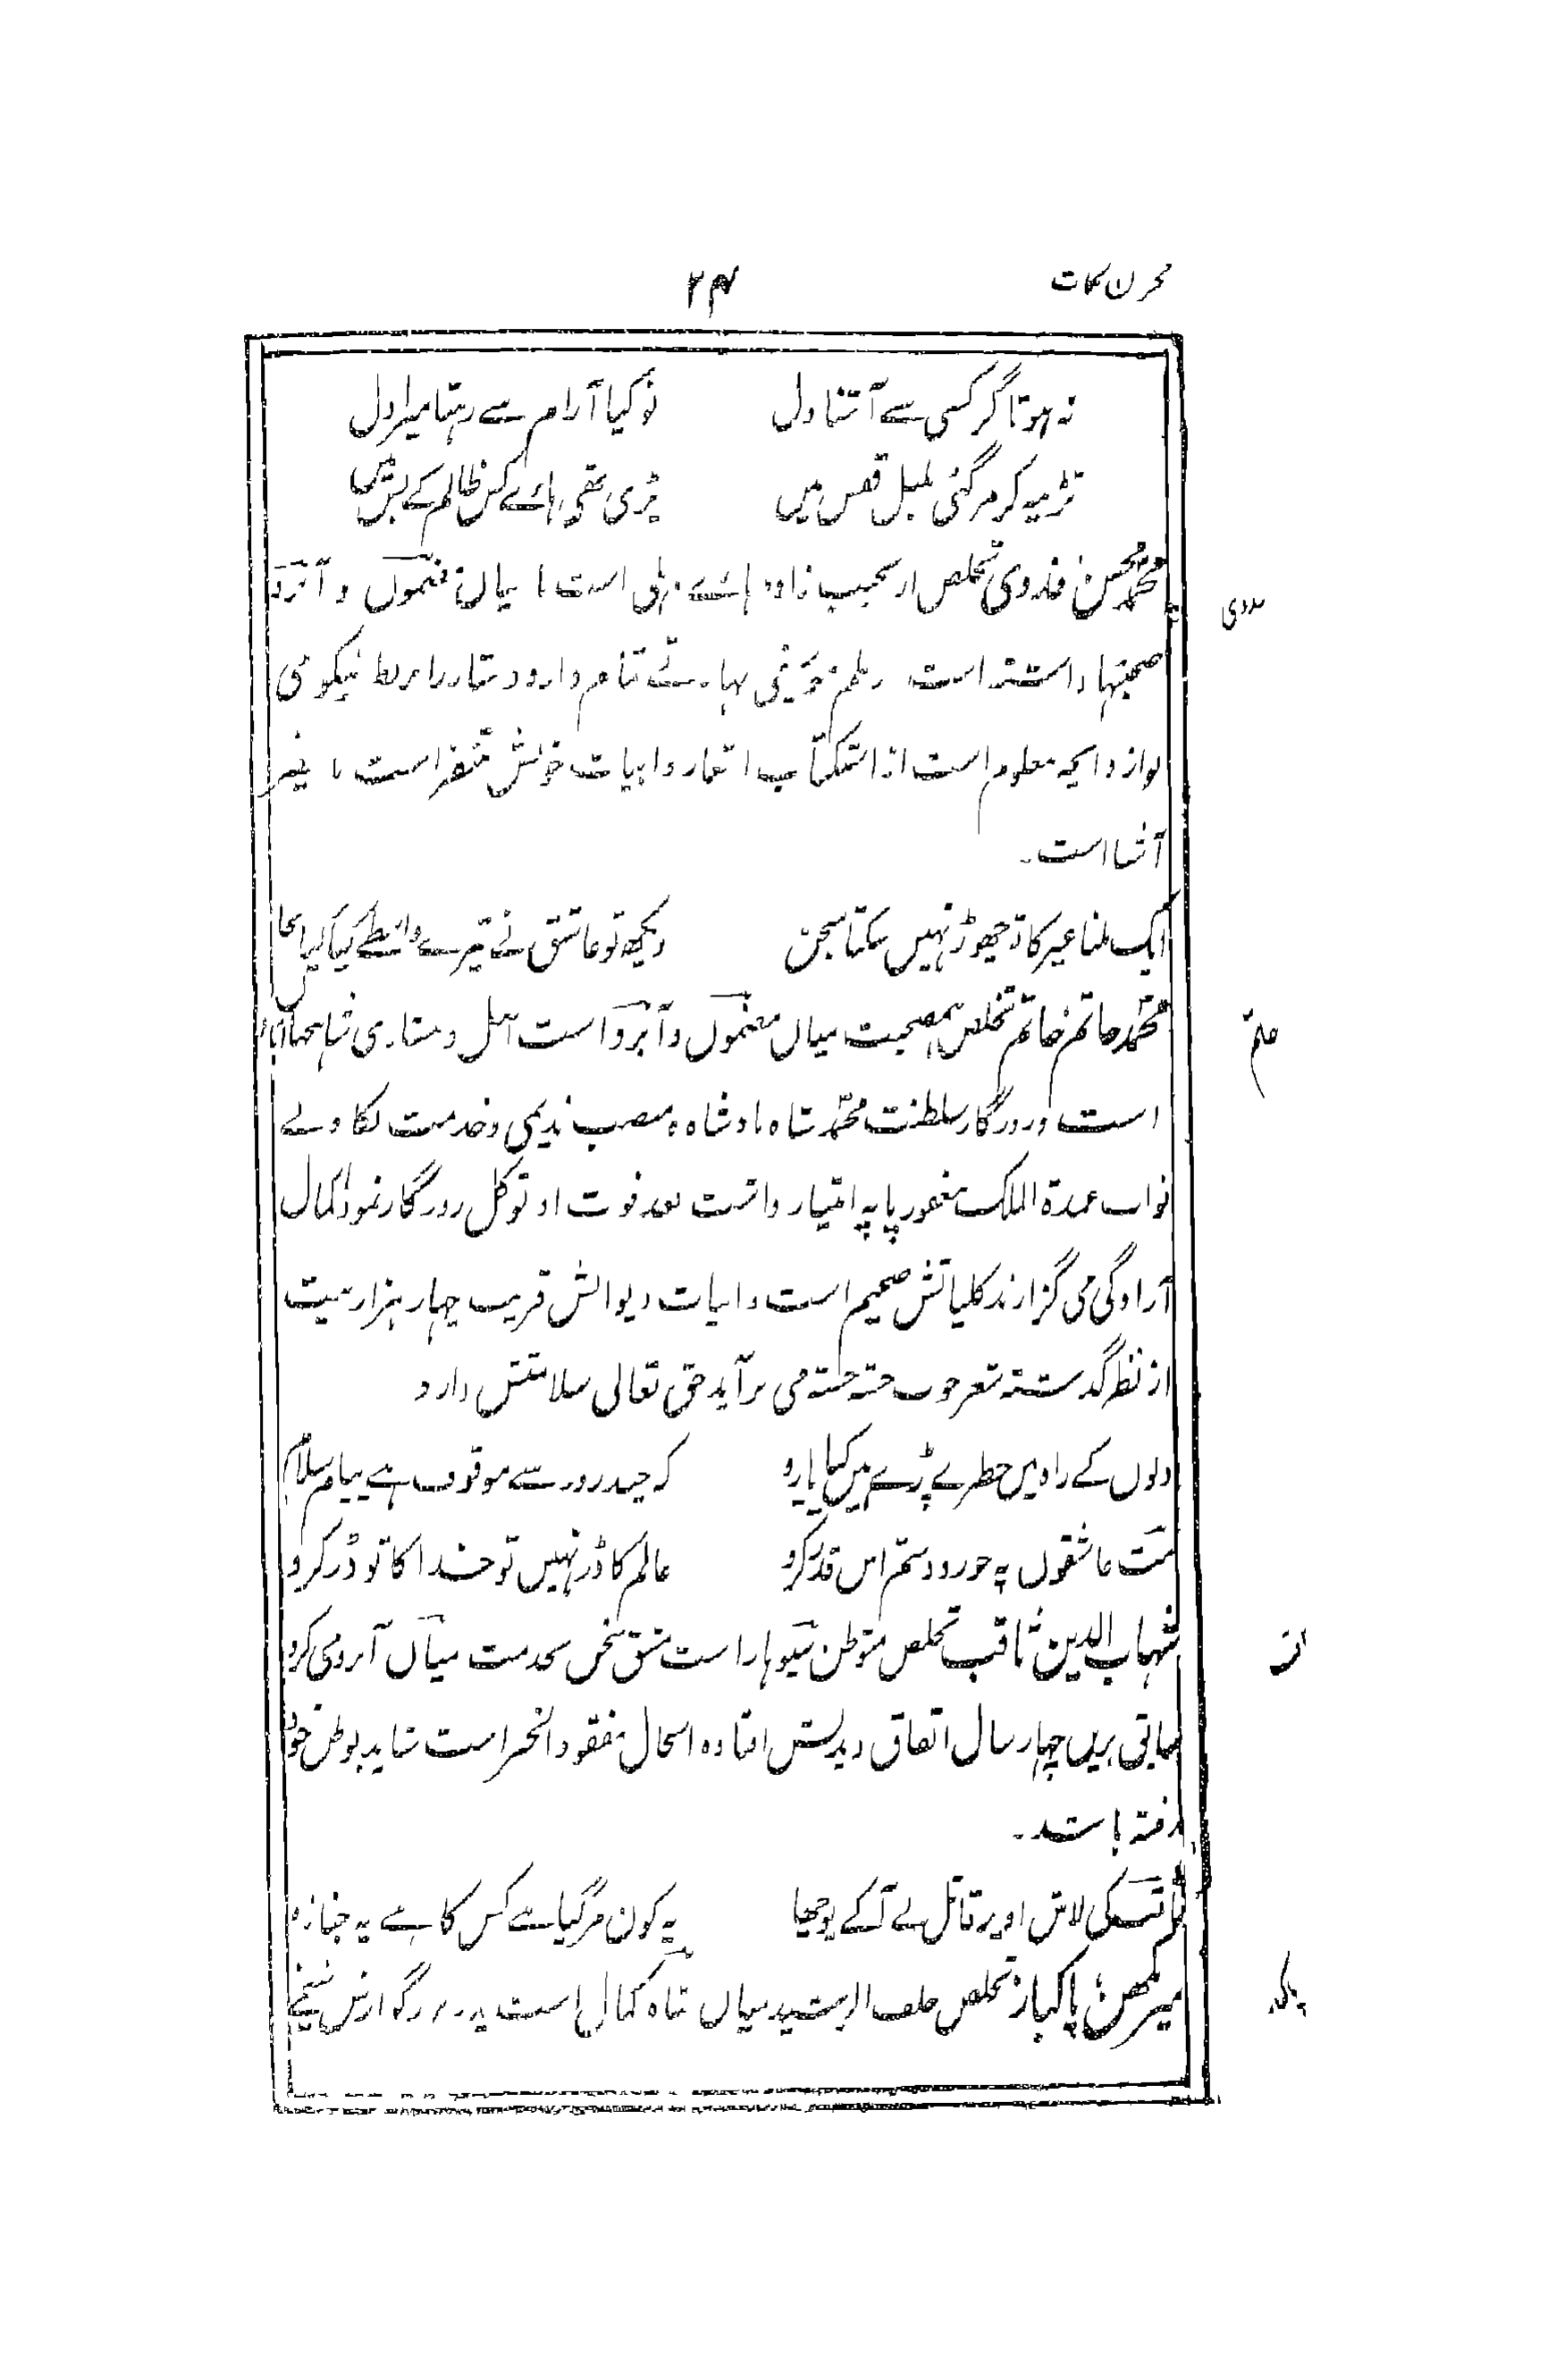 مخزن نکات
۲۴
نہ ہوتا گر کسی سے آشنا دل تو کیا آرام سے رہتا میرا دل
تڑپہ کر مر گئی بلبل قفس میں پڑی تھی ہائے کس ظالم کے بس میں
محمد محسن فدوی تخلص از نجیب زادہ ہائے دہلی است با میاں مضموں و آبرو
صحبتہا داشتہ است
معلوم است از اشعار و ابیات خویش متنفر است
آشنا است۔
ایک ملنا غیر کا تو چھوڑ نہیں سکتا سجن دیکھ تو عاشق نے تیرے واسطے کیا کیا تجا
محمد حاتم حاتم تخلص ہمصحبت میاں مضموں و آبرو است اصل و شاہجہاں آباد
است در روزگار سلطنت محمد شاہ بادشاہ بمنصب ندیمی و خدمت بکاولے
نواب عمدة الملک مغفور پایہ امتیاز داشت بعد فوت او توکل روزگار نمودہ بکمال
آزادگی می گزراند کلیاتش ضخیم است و ابیات دیوانش قریب چہار ہزار بیت
از نظر گذشتہ شعر خوب جستہ جستہ می برآید حق تعالی سلامتش دارد
دلوں کے راہ میں خطرے پڑے ہیں کیا یارو کہ چند روز سے موقوف ہے پیام سلام
مت عاشقوں پہ جور و ستم اس قدر کرو عالم کا ڈر نہیں تو خدا کا تو ڈر کرو
شہاب الدین ثاقب تخلص متوطن سیوہارا است مشق سخن بخدمت میاں آبرو می کرد
بریں چہار سال اتفاق دیدنش افتادہ الحال مفقود الخبر است شاید بوطن خود
رفتہ باشد۔
ثاقب کی لاش اوپر قاتل نے آ کے پوچھا یہ کون مر گیا ہے کس کا ہے یہ جنازہ
میر مکھن پاکباز تخلص خلف الرشید میاں شاہ کمال است پدر بزرگوارش شیخے
حاتم